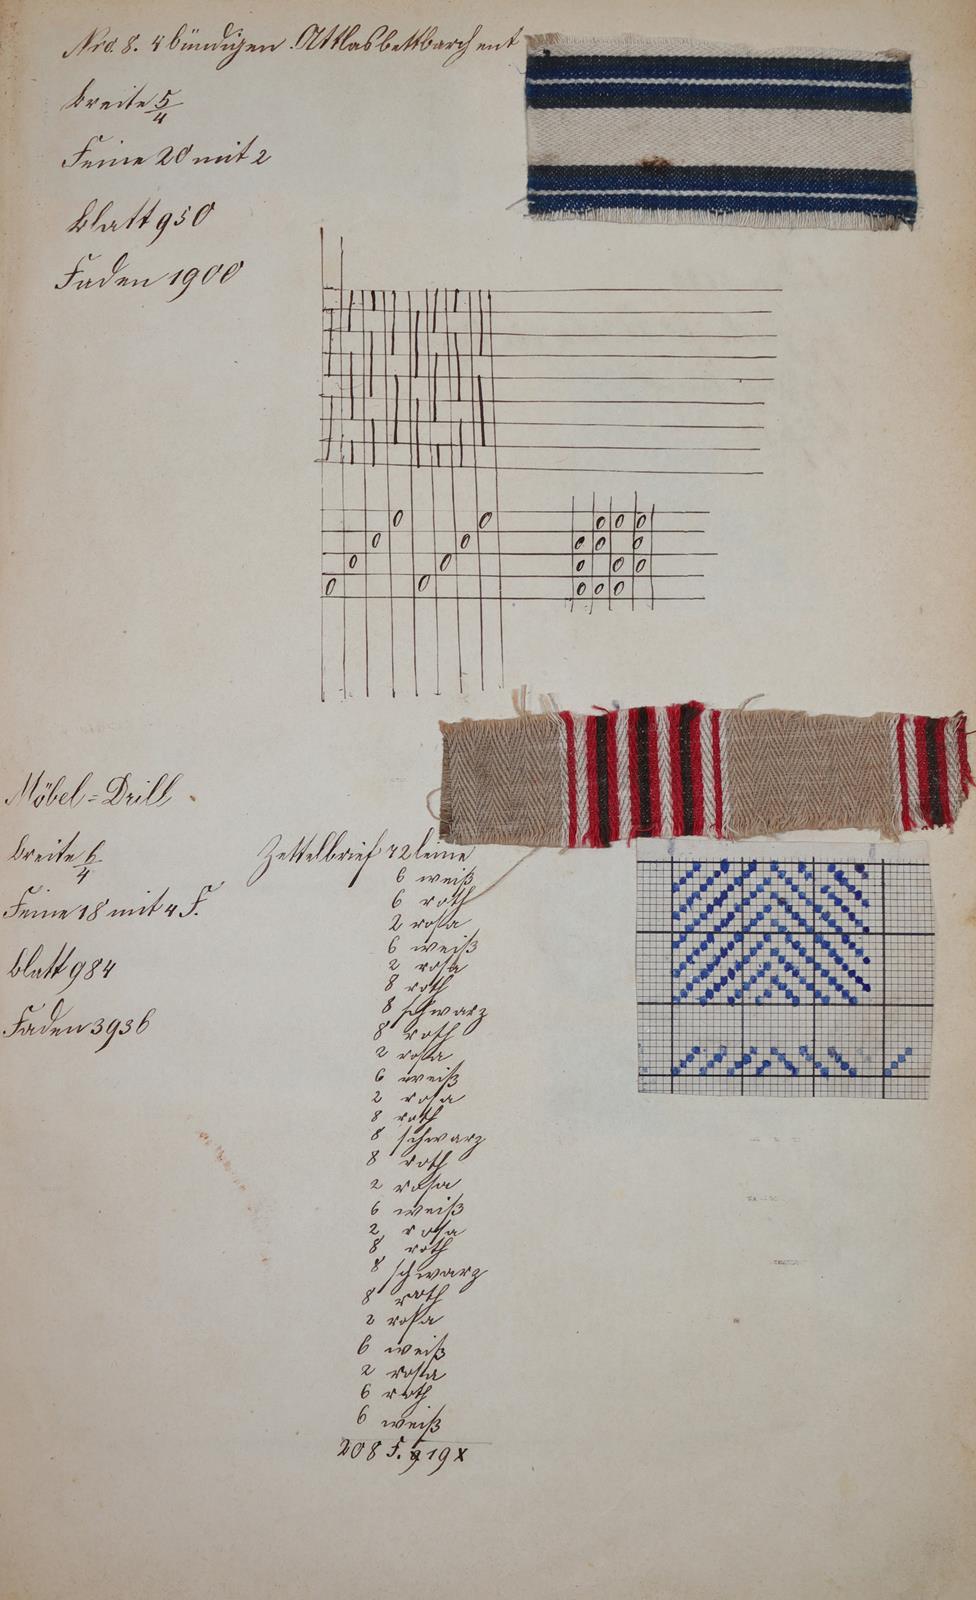 Nro. 8. 4 bündigen Attlasbettbarchent
Breite 5/4
Feine 20 mit 2
Blatt 950
Faden 1900
Möbel=Drill
Breite 6/4
Feine 18 mit 4 F.
Blatt 984
Faden 3936
Zettelbrief 72 leine
6 weiß
6 roth
2 rosa
6 weiß
2 rosa
8 roth
8 schwarz
8 roth
2 rosa
6 weiß
2 rosa
8 roth
8 schwarz
8 roth
2 rosa
6 weiß
2 rosa
8 roth
8 schwarz
8 roth
2 rosa
6 weiß
2 rosa
6 roth
6 weiß
208 F. 19 x